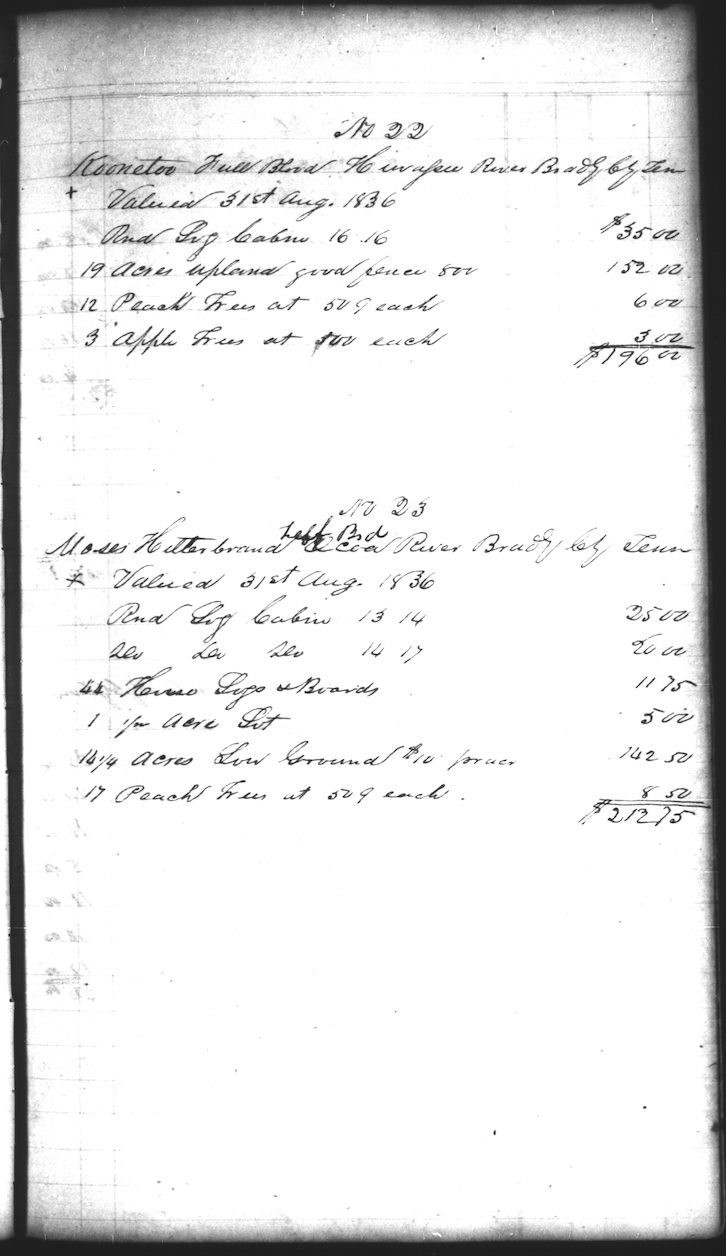 No 22
Koonetoo Full Blood Hiwassee River Bradly Cty Ten
+ Valued 31st Aug. 1836
Rnd Log Cabin 16 16 $35 00
19 Acres upland good fence 800 152 00
12 Peach Trees at 50¢ each 6 00
3 Apple Trees at 100 each 3 00
$196 00
No 23
half Brd
Moses Hilterbrand Ocoa River Bradly Cty Tenn
+ Valued 31st Aug. 1836
Rnd Log Cabin 13 14 25 00
Do Do Do 14 17 20 00
44 House Logs & Boards 11 75
1 Acre Lot 5 00
14 1/4 Acres Low Ground $10 pr acr 142 50
17 Peach Trees at 50¢ each. 8 50
$212 75